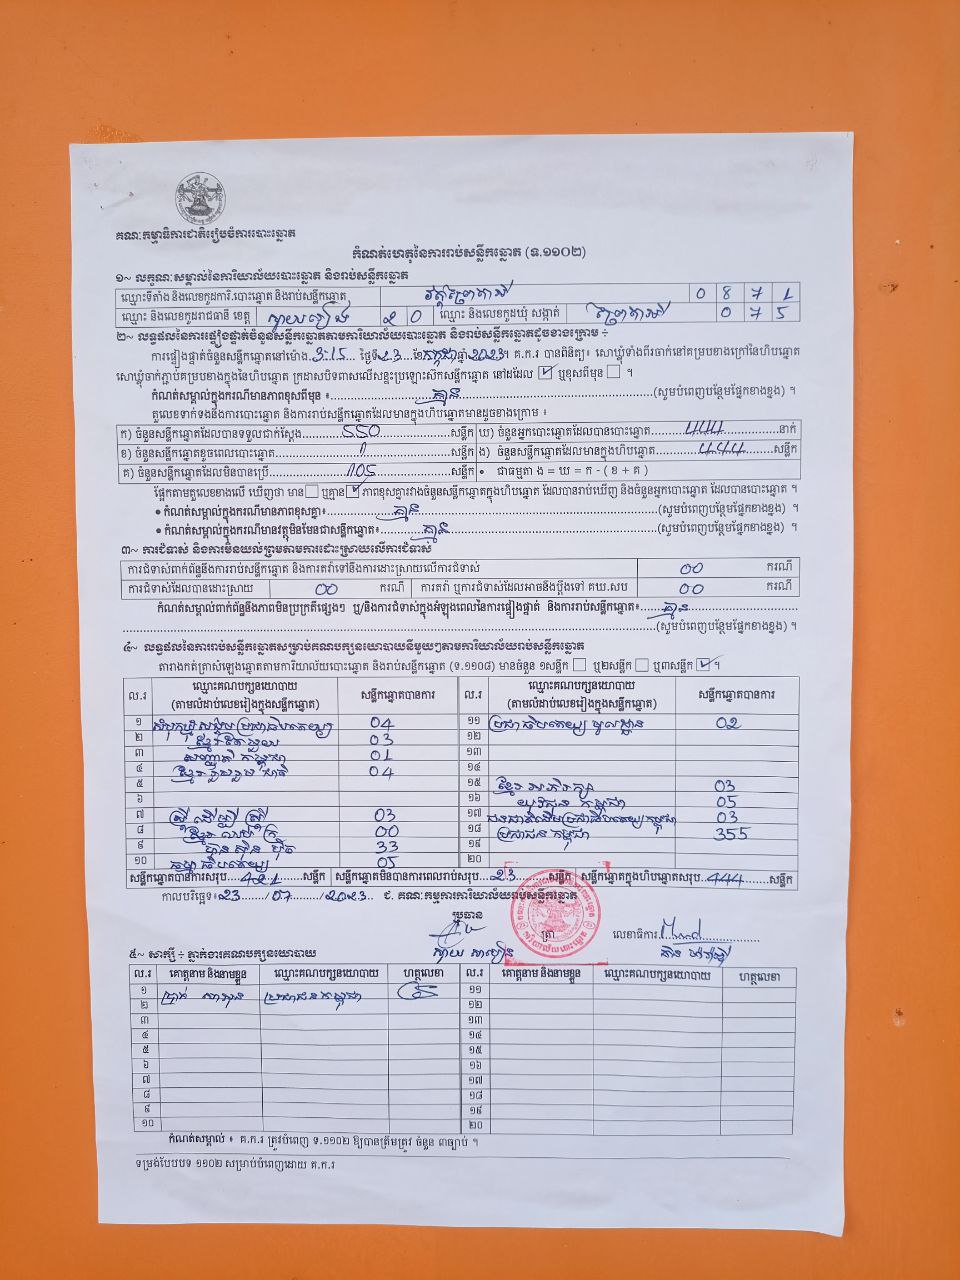 គណៈកម្មាធិការជាតិរៀបចំការបោះឆ្នោត
កំណត់ហេតុនៃការរាប់សន្លឹកឆ្នោត (ទ.១១០២)
១~ លក្ខណៈសម្គាល់នៃការិយាល័យបោះឆ្នោត និងរាប់សន្លឹកឆ្នោត
ឈ្មោះទីតាំង និងលេខកូដការិ.បោះឆ្នោត និងរាប់សន្លឹកឆ្នោត វត្តព្រៃតាអី 0 8 7 1
ឈ្មោះ និងលេខកូដរាជធានី ខេត្ត ស្វាយរៀង 2 0 ឈ្មោះ និងលេខកូដឃុំ សង្កាត់ ព្រៃតាអី 0 7 5
២~ លទ្ធផលនៃការផ្ទៀងផ្ទាត់ចំនួនសន្លឹកឆ្នោតតាមការិយាល័យបោះឆ្នោត និងរាប់សន្លឹកឆ្នោតដូចខាងក្រោម ÷
ការផ្ទៀងផ្ទាត់ចំនួនសន្លឹកឆ្នោតនៅម៉ោង 3:15 ថ្ងៃទី 23 ខែ កក្កដា ឆ្នាំ 2023 ។ គ.ក.រ បានពិនិត្យ ៖ សោឃ្លុំទាំងពីរចាក់នៅគម្របខាងក្រៅនៃហិបឆ្នោត
សោឃ្លុំចាក់ភ្ជាប់គម្របខាងក្នុងនៃហិបឆ្នោត ក្រដាសបិទពាសលើសន្ទះប្រឡោះស៊កសន្លឹកឆ្នោត នៅដដែល ☑ ឬខុសពីមុន ☐ ។
កំណត់សម្គាល់ក្នុងករណីមានភាពខុសពីមុន ៖ គ្មាន (សូមបំពេញបន្ថែមផ្នែកខាងខ្នង) ។
តួលេខទាក់ទងនឹងការបោះឆ្នោត និងការរាប់សន្លឹកឆ្នោតដែលមានក្នុងហិបឆ្នោតមានដូចខាងក្រោម ៖
ក) ចំនួនសន្លឹកឆ្នោតដែលបានទទួលជាក់ស្តែង 550 សន្លឹក ឃ) ចំនួនអ្នកបោះឆ្នោតដែលបានបោះឆ្នោត 444 នាក់
ខ) ចំនួនសន្លឹកឆ្នោតខូចពេលបោះឆ្នោត 1 សន្លឹក ង) ចំនួនសន្លឹកឆ្នោតដែលមានក្នុងហិបឆ្នោត 444 សន្លឹក
គ) ចំនួនសន្លឹកឆ្នោតដែលមិនបានប្រើ 105 សន្លឹក • ជាធម្មតា ង = ឃ = ក - ( ខ + គ )
ផ្អែកតាមតួលេខខាងលើ ឃើញថា មាន ☐ ឬគ្មាន ☑ ភាពខុសគ្នារវាងចំនួនសន្លឹកឆ្នោតក្នុងហិបឆ្នោត ដែលបានរាប់ឃើញ និងចំនួនអ្នកបោះឆ្នោត ដែលបានបោះឆ្នោត ។
• កំណត់សម្គាល់ក្នុងករណីមានភាពខុសគ្នា៖ គ្មាន (សូមបំពេញបន្ថែមផ្នែកខាងខ្នង) ។
• កំណត់សម្គាល់ក្នុងករណីមានវត្ថុមិនមែនជាសន្លឹកឆ្នោត៖ គ្មាន (សូមបំពេញបន្ថែមផ្នែកខាងខ្នង) ។
៣~ ការជំទាស់ និងការមិនយល់ព្រមតាមការដោះស្រាយលើការជំទាស់
ការជំទាស់ពាក់ព័ន្ធនឹងការរាប់សន្លឹកឆ្នោត និងការតវ៉ាទៅនឹងការដោះស្រាយលើការជំទាស់ 00 ករណី
ការជំទាស់ដែលបានដោះស្រាយ 00 ករណី ការតវ៉ា ឬការជំទាស់ដែលអាចនឹងប្តឹងទៅ គឃ.សប 00 ករណី
កំណត់សម្គាល់ពាក់ព័ន្ធនឹងភាពមិនប្រក្រតីផ្សេងៗ ឬ/និងការជំទាស់ក្នុងអំឡុងពេលនៃការផ្ទៀងផ្ទាត់ និងការរាប់សន្លឹកឆ្នោត៖ គ្មាន
(សូមបំពេញបន្ថែមផ្នែកខាងខ្នង) ។
៤~ លទ្ធផលនៃការរាប់សន្លឹកឆ្នោតសម្រាប់គណបក្សនយោបាយនីមួយៗតាមការិយាល័យរាប់សន្លឹកឆ្នោត
តារាងកត់ត្រាសំឡេងឆ្នោតតាមការិយាល័យបោះឆ្នោត និងរាប់សន្លឹកឆ្នោត (ទ.១១០៨) មានចំនួន ១សន្លឹក ☐ ឬ២សន្លឹក ☐ ឬ៣សន្លឹក ☑ ។
ល.រ ឈ្មោះគណបក្សនយោបាយ (តាមលំដាប់លេខរៀងក្នុងសន្លឹកឆ្នោត) សន្លឹកឆ្នោតបានការ ល.រ ឈ្មោះគណបក្សនយោបាយ (តាមលំដាប់លេខរៀងក្នុងសន្លឹកឆ្នោត) សន្លឹកឆ្នោតបានការ
១ សំបុកឃ្មុំសង្គមប្រជាធិបតេយ្យ 04 ១១ ប្រជាធិបតេយ្យ មូលដ្ឋាន 02
២ ខ្មែរតែមួយ 03 ១២
៣ សញ្ជាតិ កម្ពុជា 01 ១៣
៤ ខ្មែរ រួបរួម ជាតិ 04 ១៤
៥ ១៥ ខ្មែរ អភិរក្ស 03
៦ ១៦ យុវជន កម្ពុជា 05
៧ ស្ត្រី ដើម្បី ស្ត្រី 03 ១៧ ជនជាតិដើមប្រជាធិបតេយ្យកម្ពុជា 03
៨ ខ្មែរ 00 ១៨ ប្រជាជន កម្ពុជា 355
៩ ហ៊្វុនស៊ិន ប៉ិច 33 ១៩
១០ ធម្មាធិបតេយ្យ 05 ២០
សន្លឹកឆ្នោតបានការសរុប 421 សន្លឹក សន្លឹកឆ្នោតមិនបានការពេលរាប់សរុប 23 សន្លឹក សន្លឹកឆ្នោតក្នុងហិបឆ្នោតសរុប 444 សន្លឹក
កាលបរិច្ឆេទ៖ 23 / 07 / 2023 ជ. គណៈកម្មការការិយាល័យរាប់សន្លឹកឆ្នោត
ប្រធាន
ត្រា លេខាធិការ
ស្វាយ សាវឿន
៥~ សាក្សី ÷ ភ្នាក់ងារគណបក្សនយោបាយ
ល.រ គោត្តនាម និងនាមខ្លួន ឈ្មោះគណបក្សនយោបាយ ហត្ថលេខា ល.រ គោត្តនាម និងនាមខ្លួន ឈ្មោះគណបក្សនយោបាយ ហត្ថលេខា
១ ប្រាក់ សាអុន ប្រជាជនកម្ពុជា ១១
២ ១២
៣ ១៣
៤ ១៤
៥ ១៥
៦ ១៦
៧ ១៧
៨ ១៨
៩ ១៩
១០ ២០
កំណត់សម្គាល់ ៖ គ.ក.រ ត្រូវបំពេញ ទ.១១០២ ឱ្យបានត្រឹមត្រូវ ចំនួន ៣ច្បាប់ ។
ទម្រង់បែបបទ ១១០២ សម្រាប់បំពេញដោយ គ.ក.រ